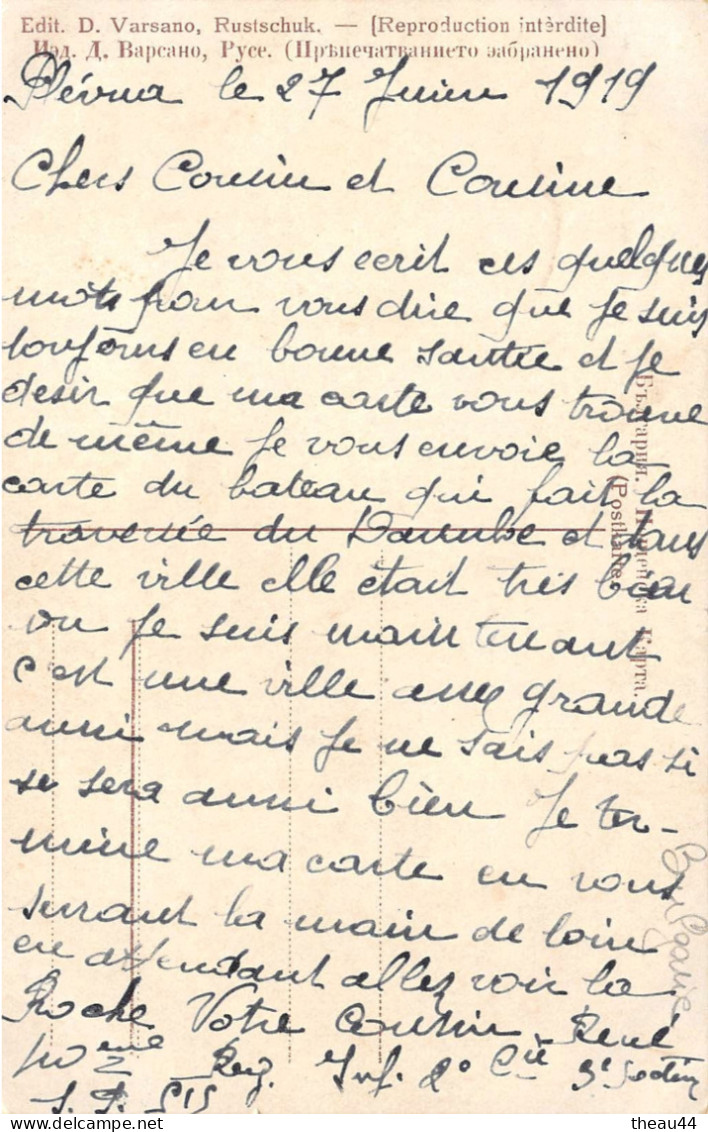 Edit. D. Varsano, Rustschuk. — (Reproduction intèrdite)
Изд. Д. Варсано, Русе. (Прѣпечатванието забранено)
Plévna le 27 Juin 1919
Chers Cousin et Cousine
Je vous ecrit ces quelques
mots pour vous dire que je suis
toujours en bonne santée et je
desir que ma carte vous trouve
de même Je vous envoie la
carte du bateau qui fait la
traversée du Danube et dans
cette ville elle était très beau
ou je suis maintenant
c'est une ville assez grande
aussi mais je ne sais pas si
se sera aussi bien Je ter-
mine ma carte en vous
serrant la main de loin
en attendant allez voir la
Roche Votre Cousin René
Reg. Inf. 2° Cie
S. P. 515
България. Пощенска Карта.
(Postkarte)
Bulgarie
theau44